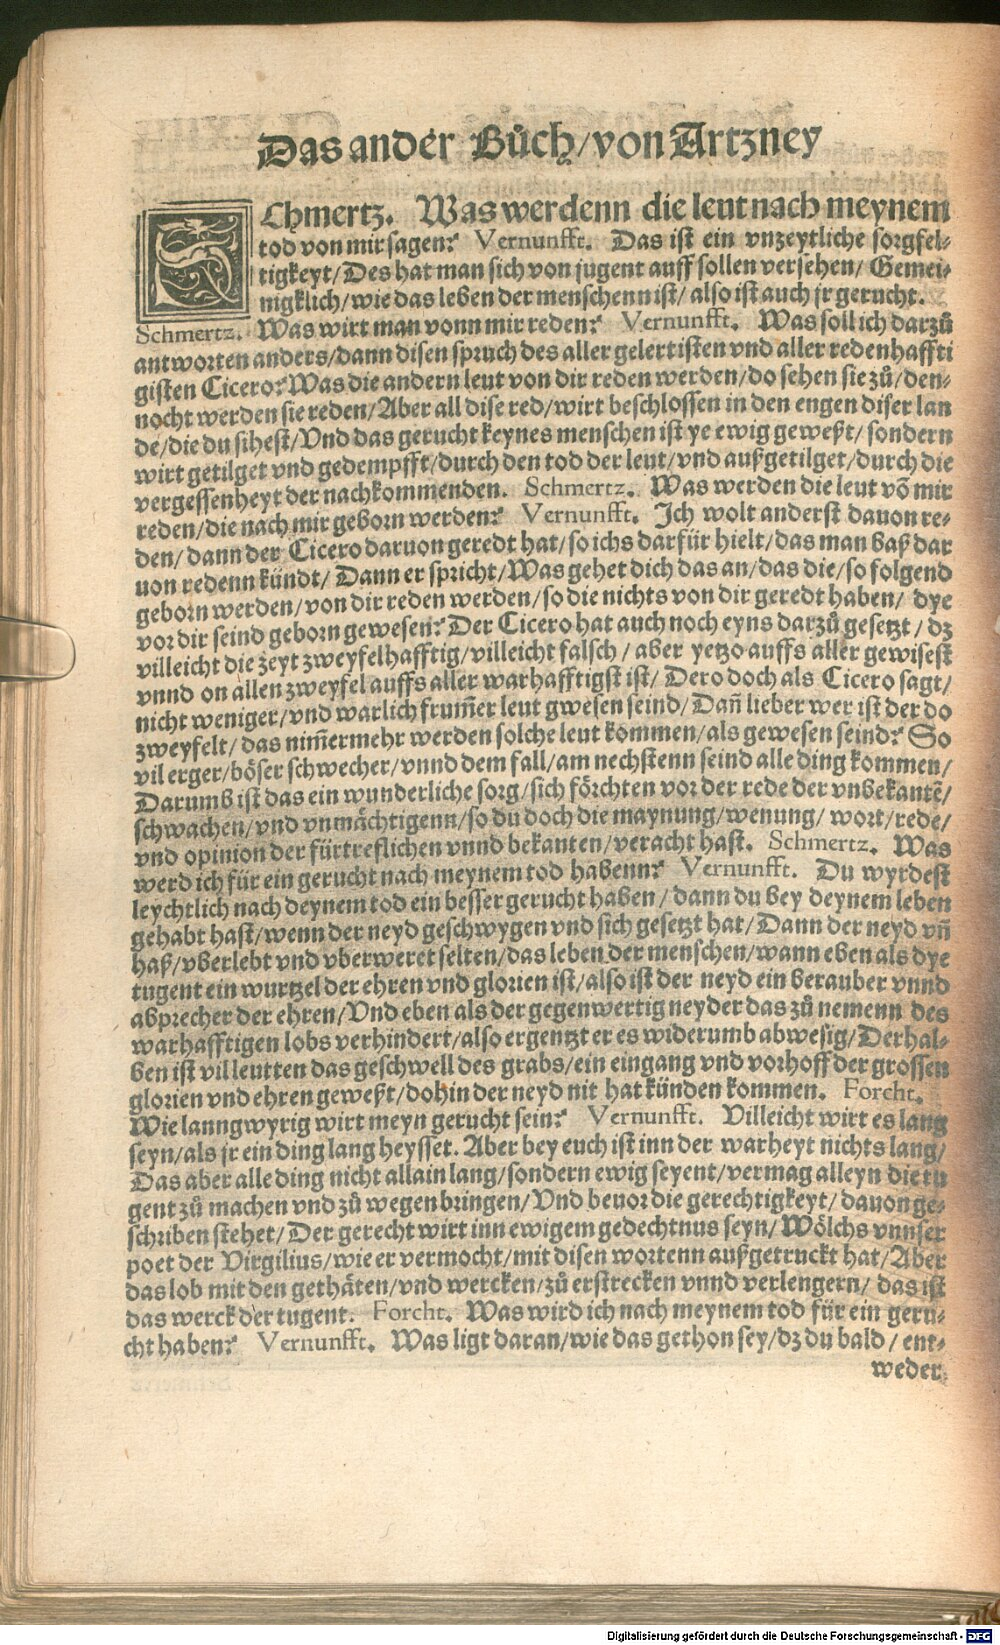 Das ander Bůch/von Artzney
SChmertz. Was werdenn die leut nach meynem
tod von mir sagen? Vernunfft. Das ist ein vnzeytliche sorgfel-
tigkeyt/Des hat man sich von jugent auff sollen versehen/ Gemei-
nigklich/wie das leben der menschenn ist/ also ist auch jr gerucht.
Schmertz. Was wirt man vonn mir reden? Vernunfft. Was soll ich darzů
antworten anders/dann disen spruch des aller gelertisten vnd aller redenhaffti
gisten Cicero? Was die andern leut von dir reden werden/do sehen sie zů/den-
nocht werden sie reden/Aber all dise red/wirt beschlossen in den engen diser lan
de/die du sihest/Vnd das gerucht keynes menschen ist ye ewig geweßt/sondern
wirt getilget vnd gedempfft/durch den tod der leut/vnd außgetilget/durch die
vergessenheyt der nachkommenden. Schmertz. Was werden die leut võ mir
reden/die nach mir geborn werden? Vernunfft. Ich wolt anderst dauon re-
den/dann der Cicero daruon geredt hat/so ichs darfür hielt/das man baß dar
uon redenn kündt/ Dann er spricht/Was gehet dich das an/das die/so folgend
geborn werden/von dir reden werden/so die nichts von dir geredt haben/ dye
vor dir seind geborn gewesen? Der Cicero hat auch noch eyns darzů gesetzt/ dz
villeicht die zeyt zweyfelhafftig/villeicht falsch/ aber yetzo auffs aller gewisest
vnnd on allen zweyfel auffs aller warhafftigst ist/ Dero doch als Cicero sagt/
nicht weniger/vnd warlich frum̃er leut gwesen seind/Dañ lieber wer ist der do
zweyfelt/das nim̃ermehr werden solche leut kommen/als gewesen seind? So
vil erger/böser schwecher/vnnd dem fall/am nechstenn seind alle ding kommen/
Darumb ist das ein wunderliche sorg/sich förchten vor der rede der vnbekantẽ/
schwachen/vnd vnmächtigenn/so du doch die maynung/wenung/ wort/rede/
vnd opinion der fürtreflichen vnnd bekanten/veracht hast. Schmertz. Was
werd ich für ein gerucht nach meynem tod habenn? Vernunfft. Du wyrdest
leychtlich nach deynem tod ein besser gerucht haben/ dann du bey deynem leben
gehabt hast/wenn der neyd geschwygen vnd sich gesetzt hat/Dann der neyd vñ
haß/vberlebt vnd vberweret selten/das leben der menschen/wann eben als dye
tugent ein wurtzel der ehren vnd glorien ist/also ist der neyd ein berauber vnnd
absprecher der ehren/Vnd eben als der gegenwertig neyder das zů nemenn des
warhafftigen lobs verhindert/also ergentzt er es widerumb abwesig/Derhal-
ben ist vil leutten das geschwell des grabs/ein eingang vnd vorhoff der grossen
glorien vnd ehren geweßt/dohin der neyd nit hat künden kommen. Forcht.
Wie lanngwyrig wirt meyn gerucht sein? Vernunfft. Villeicht wirt es lang
seyn/als jr ein ding lang heysset. Aber bey euch ist inn der warheyt nichts lang/
Das aber alle ding nicht allain lang/sondern ewig seyent/vermag alleyn die tu
gent zů machen vnd zů wegen bringen/Vnd beuor die gerechtigkeyt/dauon ge-
schriben stehet/Der gerecht wirt inn ewigem gedechtnus seyn/Wölchs vnnser
poet der Virgilius/wie er vermocht/mit disen wortenn außgetruckt hat/Aber
das lob mit den gethäten/vnd wercken/zů erstrecken vnnd verlengern/ das ist
das werck der tugent. Forcht. Was wird ich nach meynem tod für ein geru-
cht haben? Vernunfft. Was ligt daran/wie das gethon sey/dz du bald/ ent-
weder
Digitalisierung gefördert durch die Deutsche Forschungsgemeinschaft - DFG